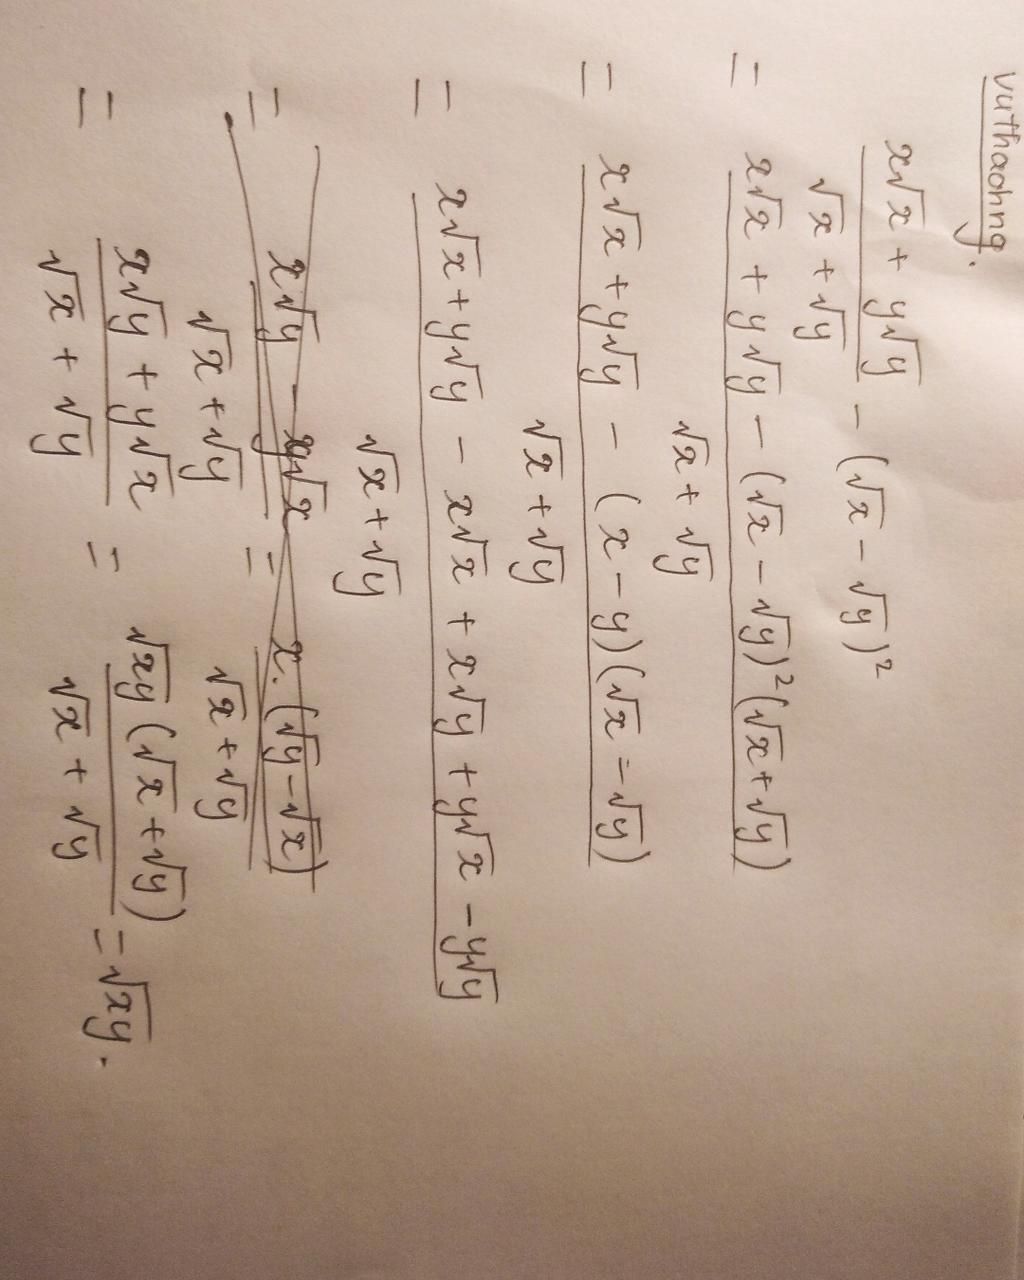 vuthaohng.
(x√x + y√y)/(√x + √y) − (√x − √y)²
= (x√x + y√y − (√x − √y)²(√x + √y))/(√x + √y)
= (x√x + y√y − (x − y)(√x − √y))/(√x + √y)
= (x√x + y√y − x√x + x√y + y√x − y√y)/(√x + √y)
= (x√y − x√x)/(√x + √y) = x.(√y − √x)/(√x + √y)
= (x√y + y√x)/(√x + √y) = √xy (√x + √y)/(√x + √y) = √xy.